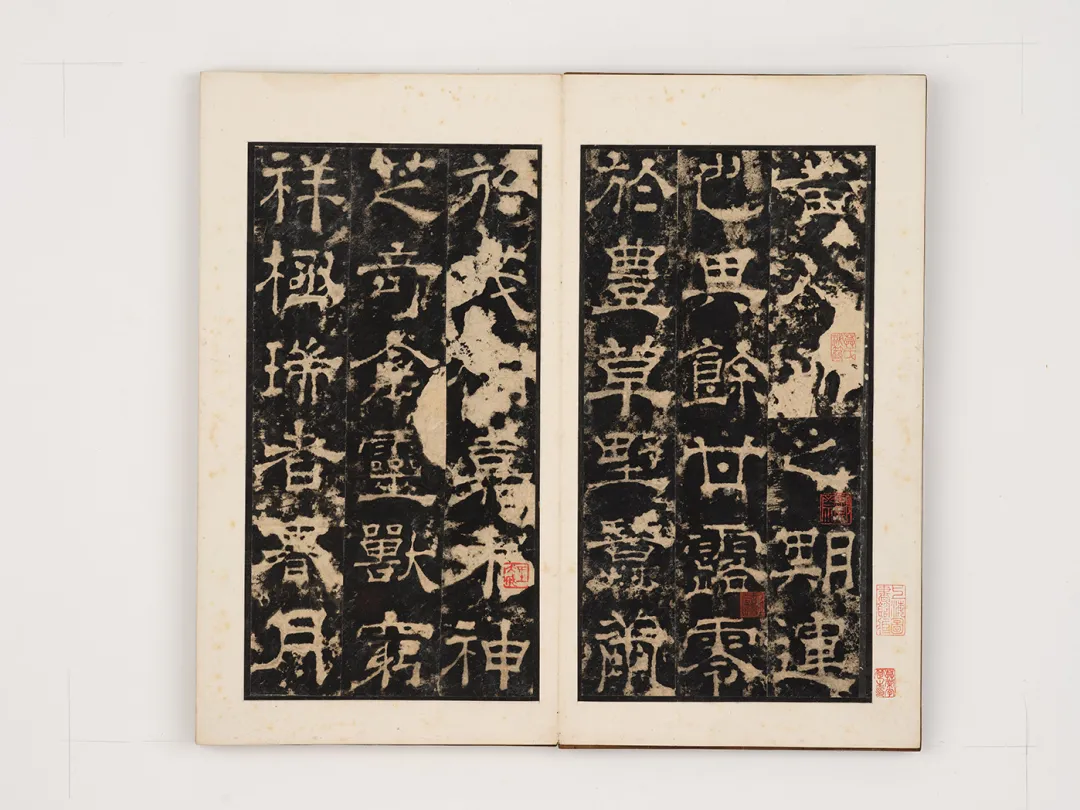 黃之期運
也其餘甘露零
於豐草野蠶繭
於茂嘉禾神
芝奇禽靈獸窮
祥極瑞者朞月